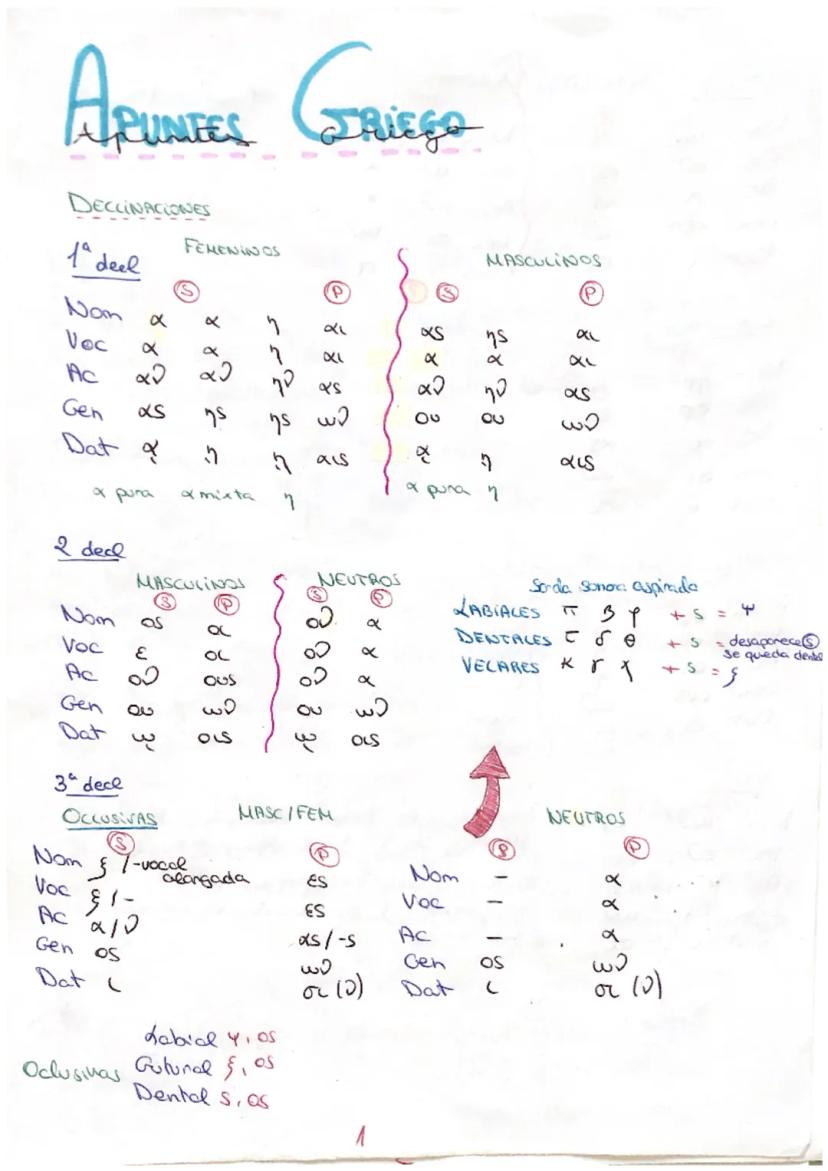 APUNTES GRIEGO
Apuntes Griego
DECLINACIONES
1ª decl FEMENINOS MASCULINOS
S P S P
Nom α α η αι ας ης αι
Voc α α η αι α α αι
Ac αν αν ην ας αν ην ας
Gen ας ης ης ων ου ου ων
Dat ᾳ ῃ ῃ αις ᾳ ῃ αις
α pura α mixta η α pura η
2 decl
MASCULINOS NEUTROS
S P S P
Nom ος οι ον α
Voc ε οι ον α
Ac ον ους ον α
Gen ου ων ου ων
Dat ῳ οις ῳ οις
Sorda sonora aspirada
LABIALES π β φ + s = ψ
DENTALES τ δ θ + s = desaparece S se queda dental
VELARES κ γ χ + s = ξ
3ª decl
OCLUSIVAS MASC/FEM NEUTROS
S P S P
Nom ξ /-vocal alargada ες - α
Voc ξ /- ες - α
Ac α/ν ας/-s - α
Gen ος ων ος ων
Dat ι σι (ν) ι σι (ν)
Oclusivas
Labial ψ, ος
Gutural ξ, ος
Dental s, ος
1